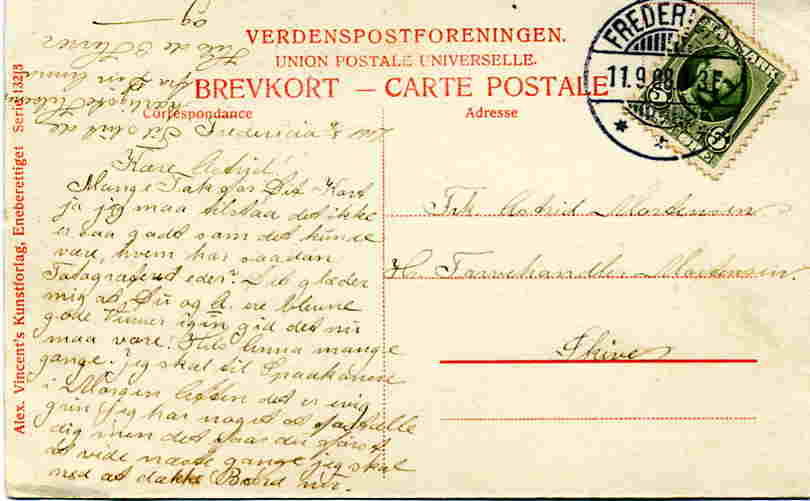 VERDENSPOSTFORENINGEN.
UNION POSTALE UNIVERSELLE.
BREVKORT — CARTE POSTALE
Correspondance
Adresse
Alex. Vincent's Kunstforlag, Eneberettiget Serie 132/8
FREDER
11.9.08 3 F
DANMARK
5
Fredericia
Kære Astrid!
Mange Tak for Dit Kort
ja jeg maa tilstaa det ikke
er saa godt som det kunde
være, hvem har saadan
Fotograferet eder? Det glæder
mig at Du og A. ere blevne
gode Venner igin gid det nu
maa vare! Hils Anna mange
gange. Jeg skal til
i Morgen Aften det er evig
grin jeg har noget at fortælle
dig men det faar du først
at vide næste gange jeg skal
ned at dække Bord nu.
Kærligste Hilsen
fra Din Anna
Hils de
og
Frk Astrid Mortensen
Hr. Farvehandler Mortensen.
Skive